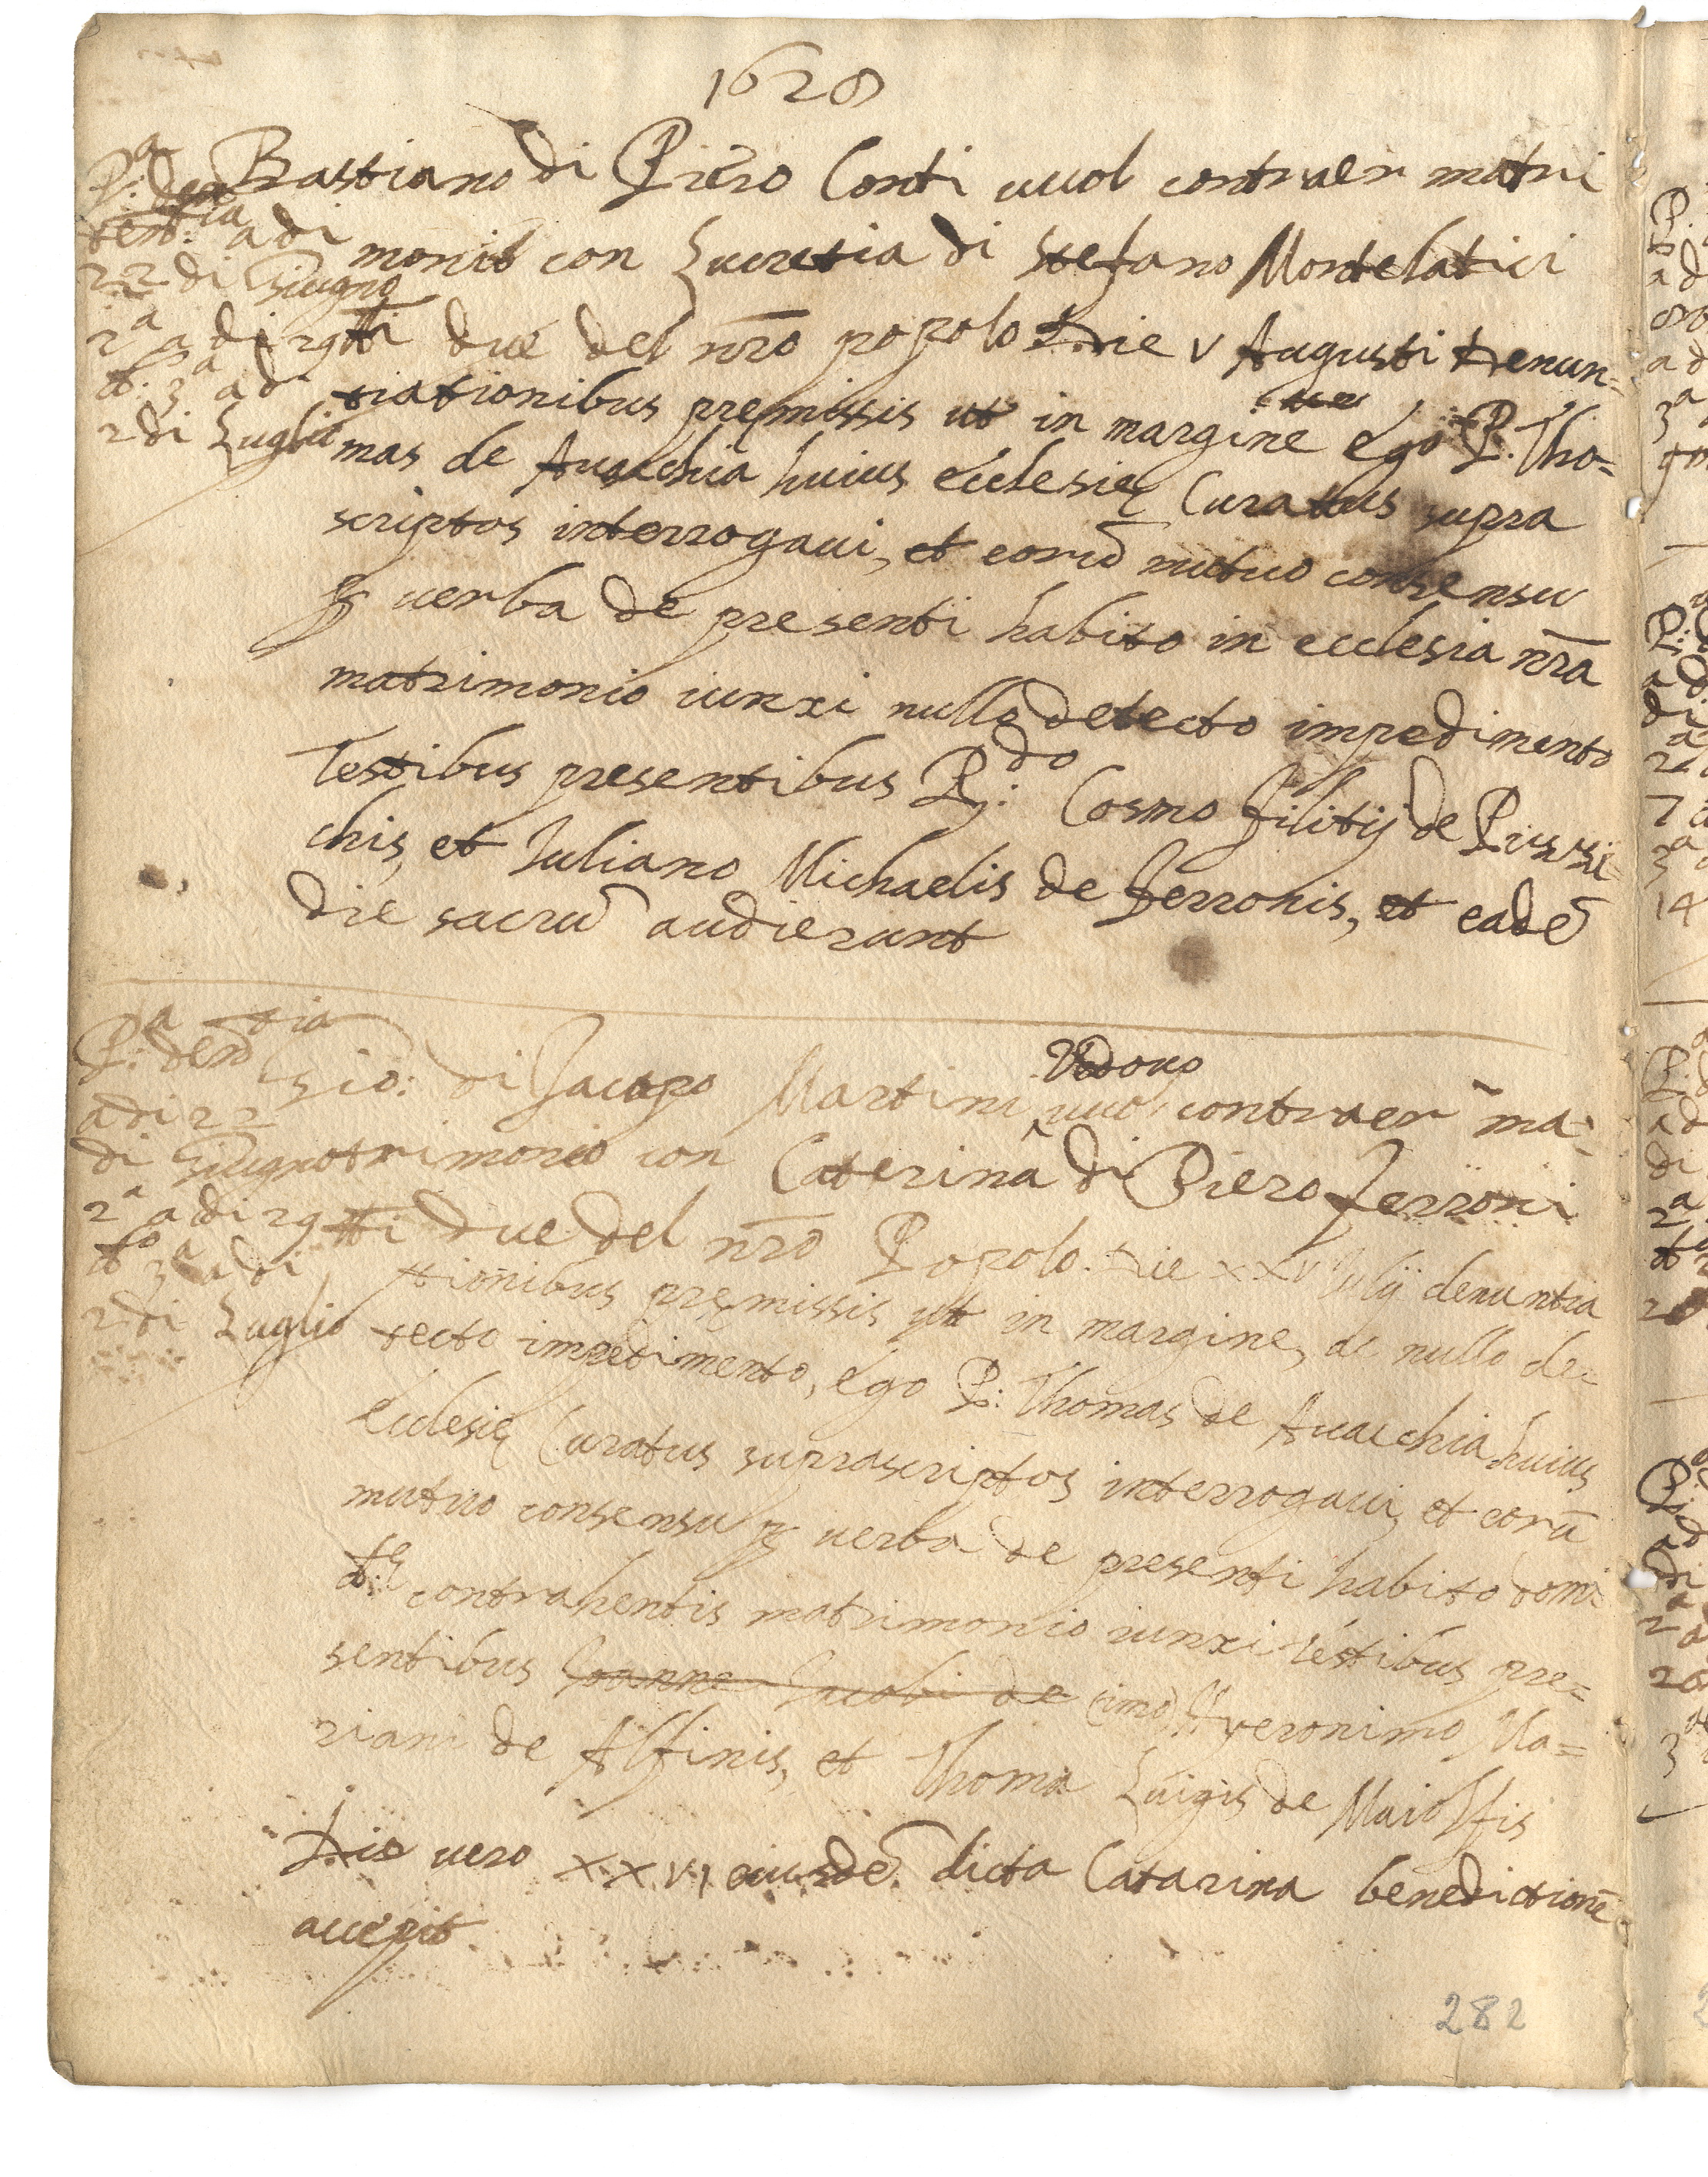 1628
P:ª den
tia
ten: adi
22 di Giugno
2ª adi 29
d:º 3ª adi
2 di Luglio
Bastiano di Piero Conti uuol contraer matri
monio con Lucretia di Stefano Montelatici
tti due del nr̃o popolo Die V Augusti Denun=
tiationibus premissis ut in margine ego P. Tho=
mas de Auacchia huius ecclesię Curatus supra
scriptos interrogaui, et eorũ mutuo consensu
ꝑ uerba de presenti habito in ecclesia nr̃a
matrimonio iunxi nullo detecto impedimento
Testibus presentibus R:do Cosmo filitij de
chis, et Iuliano Michaelis de Ferronis, et eadẽ
die sacrũ audierunt
P:ª den̄tia
adi 22
di Giugno
2ª adi 29
dº 3ª adi
2 di Luglio
Gio: di Jacopo Martini Vedouo uuol contraer ma=
trimonio con Caterina di Piero Ferroni
tti due del nr̃o Popolo. Die XXV Iulij denuntia
tionibus premissis ut in margine, ac nullo de=
tecto impedimento, ego P: Thomas de Auacchia huius
Ecclesię Curatus suprascriptos interrogaui, et eorũ
mutuo consensu ꝑ uerba de presenti habito domi
d:ę contrahentis matrimonio iunxi testibus pre=
sentibus Joanne Jacobi de (imo) Hyeronimo Ma=
riani de Alfinis, et Thoma Luigis de
Die uero XXVI eiusdẽ dicta Catarina benedictionẽ
accepit
282